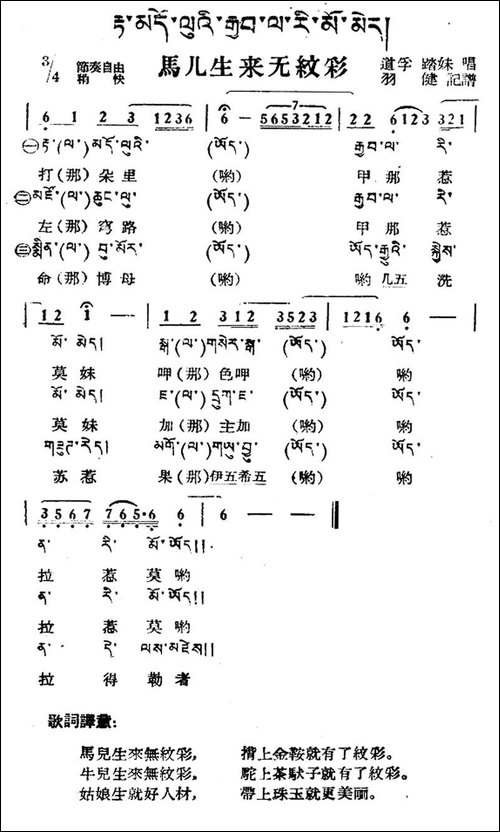 རྟ་མདོ་ལུའི་རྒྱབ་ལ་རི་མོ་མེད།
3/4 節奏自由 稍快
馬儿生来无紋彩
道孚 踏妹 唱
羽健 記譜
6 1 2 2 3 1236 6 — 5653212 2 2 6123 321
(一)རྟ་(ལ་)མདོ་ལུའི་ (ཡོད་) རྒྱབ་ལ་ རི་
打(那)朵里 (喲) 甲那 惹
(二)མཛོ་(ལ་)ཆུང་ལུ་ (ཡོད་) རྒྱབ་ལ་ རི་
左(那)穹路 (喲) 甲那 惹
(三)སྨིན་(ལ་)བུ་མོར་ (ཡོད་) ཡོད་རྒྱུའི་ སྐྱེས་
命(那)博母 (喲) 喲几五 洗
12 i — 1 2 2 312 3523 1216 6 —
མོ་ མེད། སྒ་(ལ་)གསེར་སྒ་ (ཡོད་) ཡོད་
莫 妹 呷(那)色呷 (喲) 喲
མོ་ མེད། ཇ་(ལ་)དྲུག་ཇ་ (ཡོད་) ཡོད་
莫 妹 加(那)主加 (喲) 喲
གཟུཊ་རེད། མགོ་(ལ་)གཡུ་བྱུ་ (ཡོད་) ཡོད་
苏 惹 果(那)伊五希五 (喲) 喲
3567 765·6 6 6 — —
ན་ རི་ མོ་ཡོད།།
拉 惹 莫喲
ན་ རི་ མོ་ཡོད།།
拉 惹 莫喲
ན་ དེ་ ལས་མཛེས།།
拉 得 勒者
歌詞譯意:
馬兒生來無紋彩, 揹上金鞍就有了紋彩。
牛兒生來無紋彩, 駝上茶馱子就有了紋彩。
姑娘生就好人材, 帶上珠玉就更美丽。